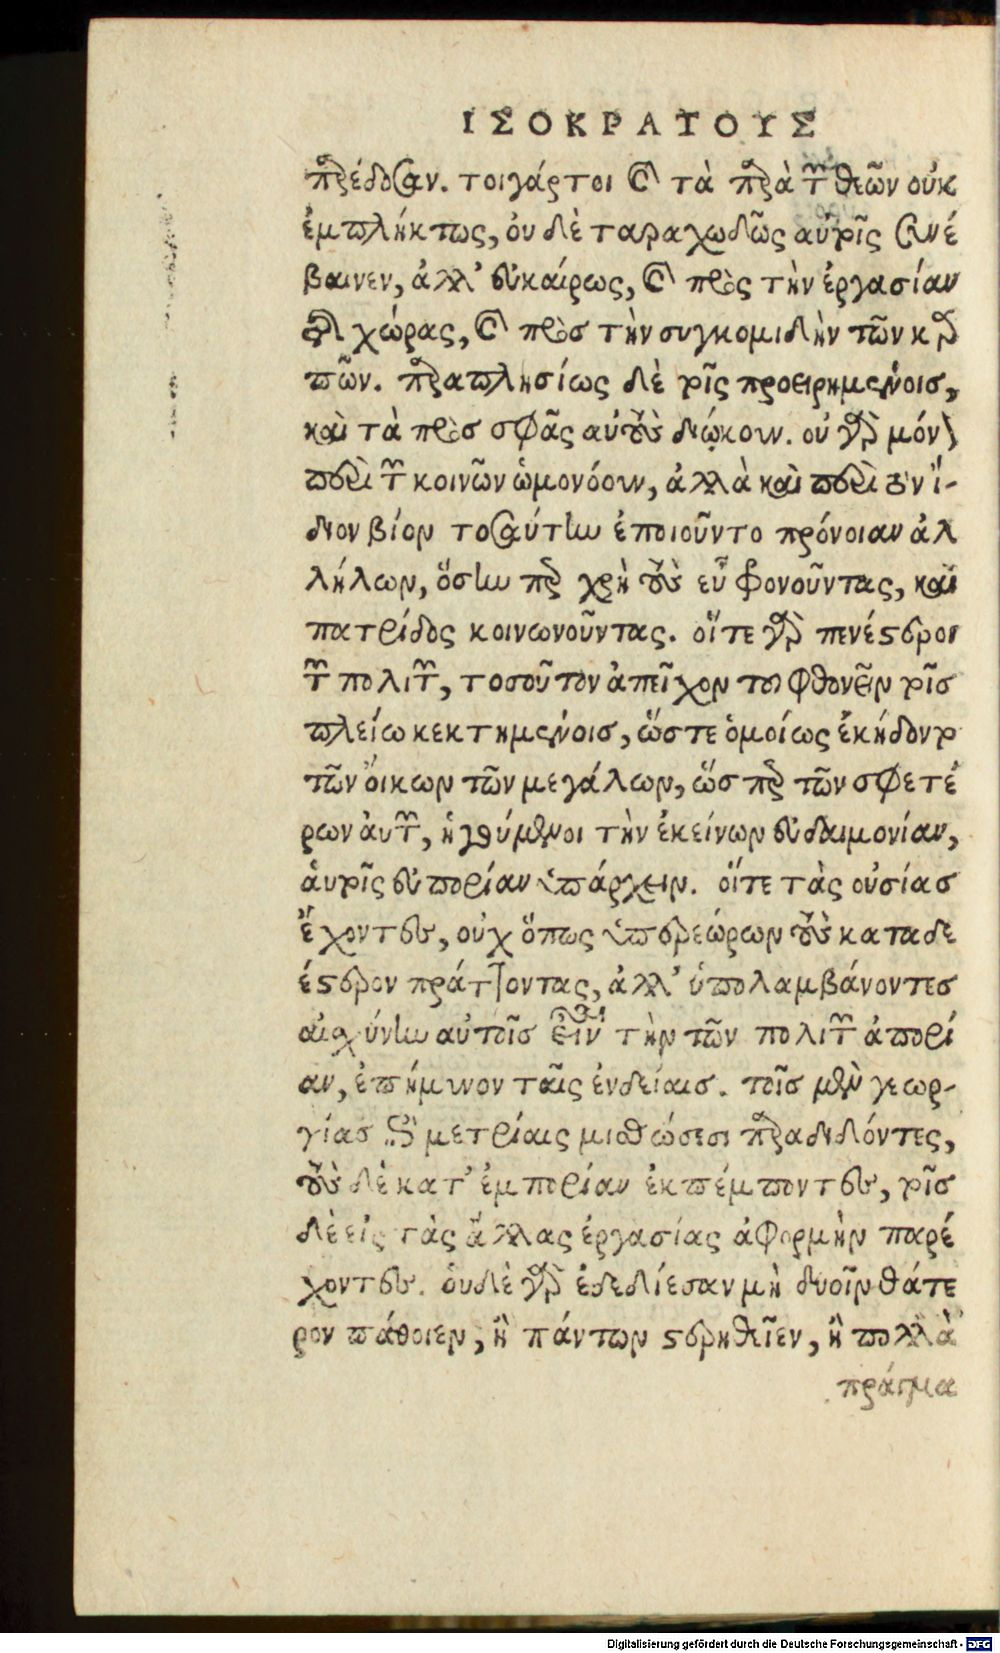 ΙΣΟΚΡΑΤΟΥΣ
παρέδοσαν. τοιγάρτοι καὶ τὰ παρὰ τῶν θεῶν οὐκ
ἐμπλήκτως, οὐδὲ ταραχωδῶς αὐτοῖς συνέ
βαινεν, ἀλλ' εὐκαίρως, καὶ πρὸς τὴν ἐργασίαν
τῆς χώρας, καὶ πρὸς τὴν συγκομιδὴν τῶν καρ
πῶν. παραπλησίως δὲ τοῖς προειρημένοις,
καὶ τὰ πρὸς σφᾶς αὐτοὺς διῴκουν. οὐ γὰρ μόνον
περὶ τῶν κοινῶν ὡμονόουν, ἀλλὰ καὶ περὶ τὸν ἴ-
διον βίον τοσαύτην ἐποιοῦντο πρόνοιαν ἀλ
λήλων, ὅσην περ χρὴ τοὺς εὖ φρονοῦντας, καὶ
πατρίδος κοινωνοῦντας. οἵτε γὰρ πενέστεροι
τῶν πολιτῶν, τοσοῦτον ἀπεῖχον τοῦ φθονεῖν τοῖς
πλείω κεκτημένοις, ὥστε ὁμοίως ἐκήδοντο
τῶν οἴκων τῶν μεγάλων, ὥσπερ τῶν σφετέ
ρων αὐτῶν, ἡγούμενοι τὴν ἐκείνων εὐδαιμονίαν,
αὑτοῖς εὐπορίαν ὑπάρχειν. οἵτε τὰς οὐσίας
ἔχοντες, οὐχ ὅπως ὑπερεώρων τοὺς καταδε
έστερον πράττοντας, ἀλλ' ὑπολαμβάνοντες
αἰσχύνην αὐτοῖς εἶναι τὴν τῶν πολιτῶν ἀπορί
αν, ἐπήμυνον ταῖς ἐνδείαις. τοῖς μὲν γεωρ-
γίας ἐπὶ μετρίαις μισθώσεσι παραδιδόντες,
τοὺς δὲ κατ' ἐμπορίαν ἐκπέμποντες, τοῖς
δὲ εἰς τὰς ἄλλας ἐργασίας ἀφορμὴν παρέ
χοντες. οὐδὲ γὰρ ἐδεδίεσαν μὴ δυοῖν θάτε
ρον πάθοιεν, ἢ πάντων στερηθεῖεν, ἢ πολλὰ
πράγμα
Digitalisierung gefördert durch die Deutsche Forschungsgemeinschaft - DFG